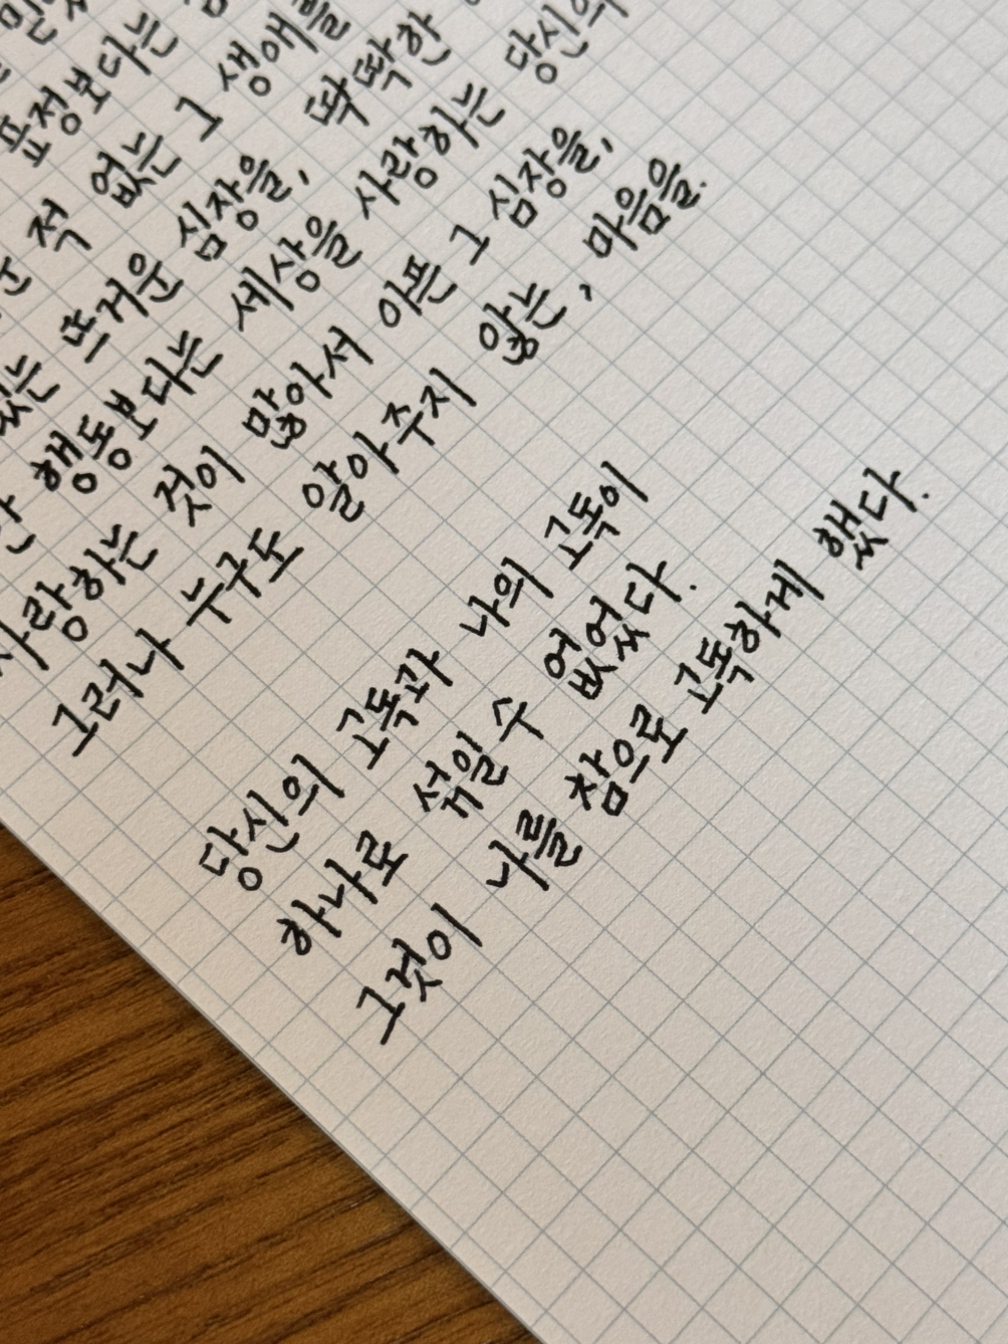 표정보다는
적 없는 그 생애를
있는 뜨거운 심장을, 딱딱한
행동보다는 세상을 사랑하는 당신의
사랑하는 것이 많아서 아픈 그 심장을,
그러나 누구도 알아주지 않는, 마음을.
당신의 고독과 나의 고독이
하나로 섞일 수 없었다.
그것이 나를 참으로 고독하게 했다.